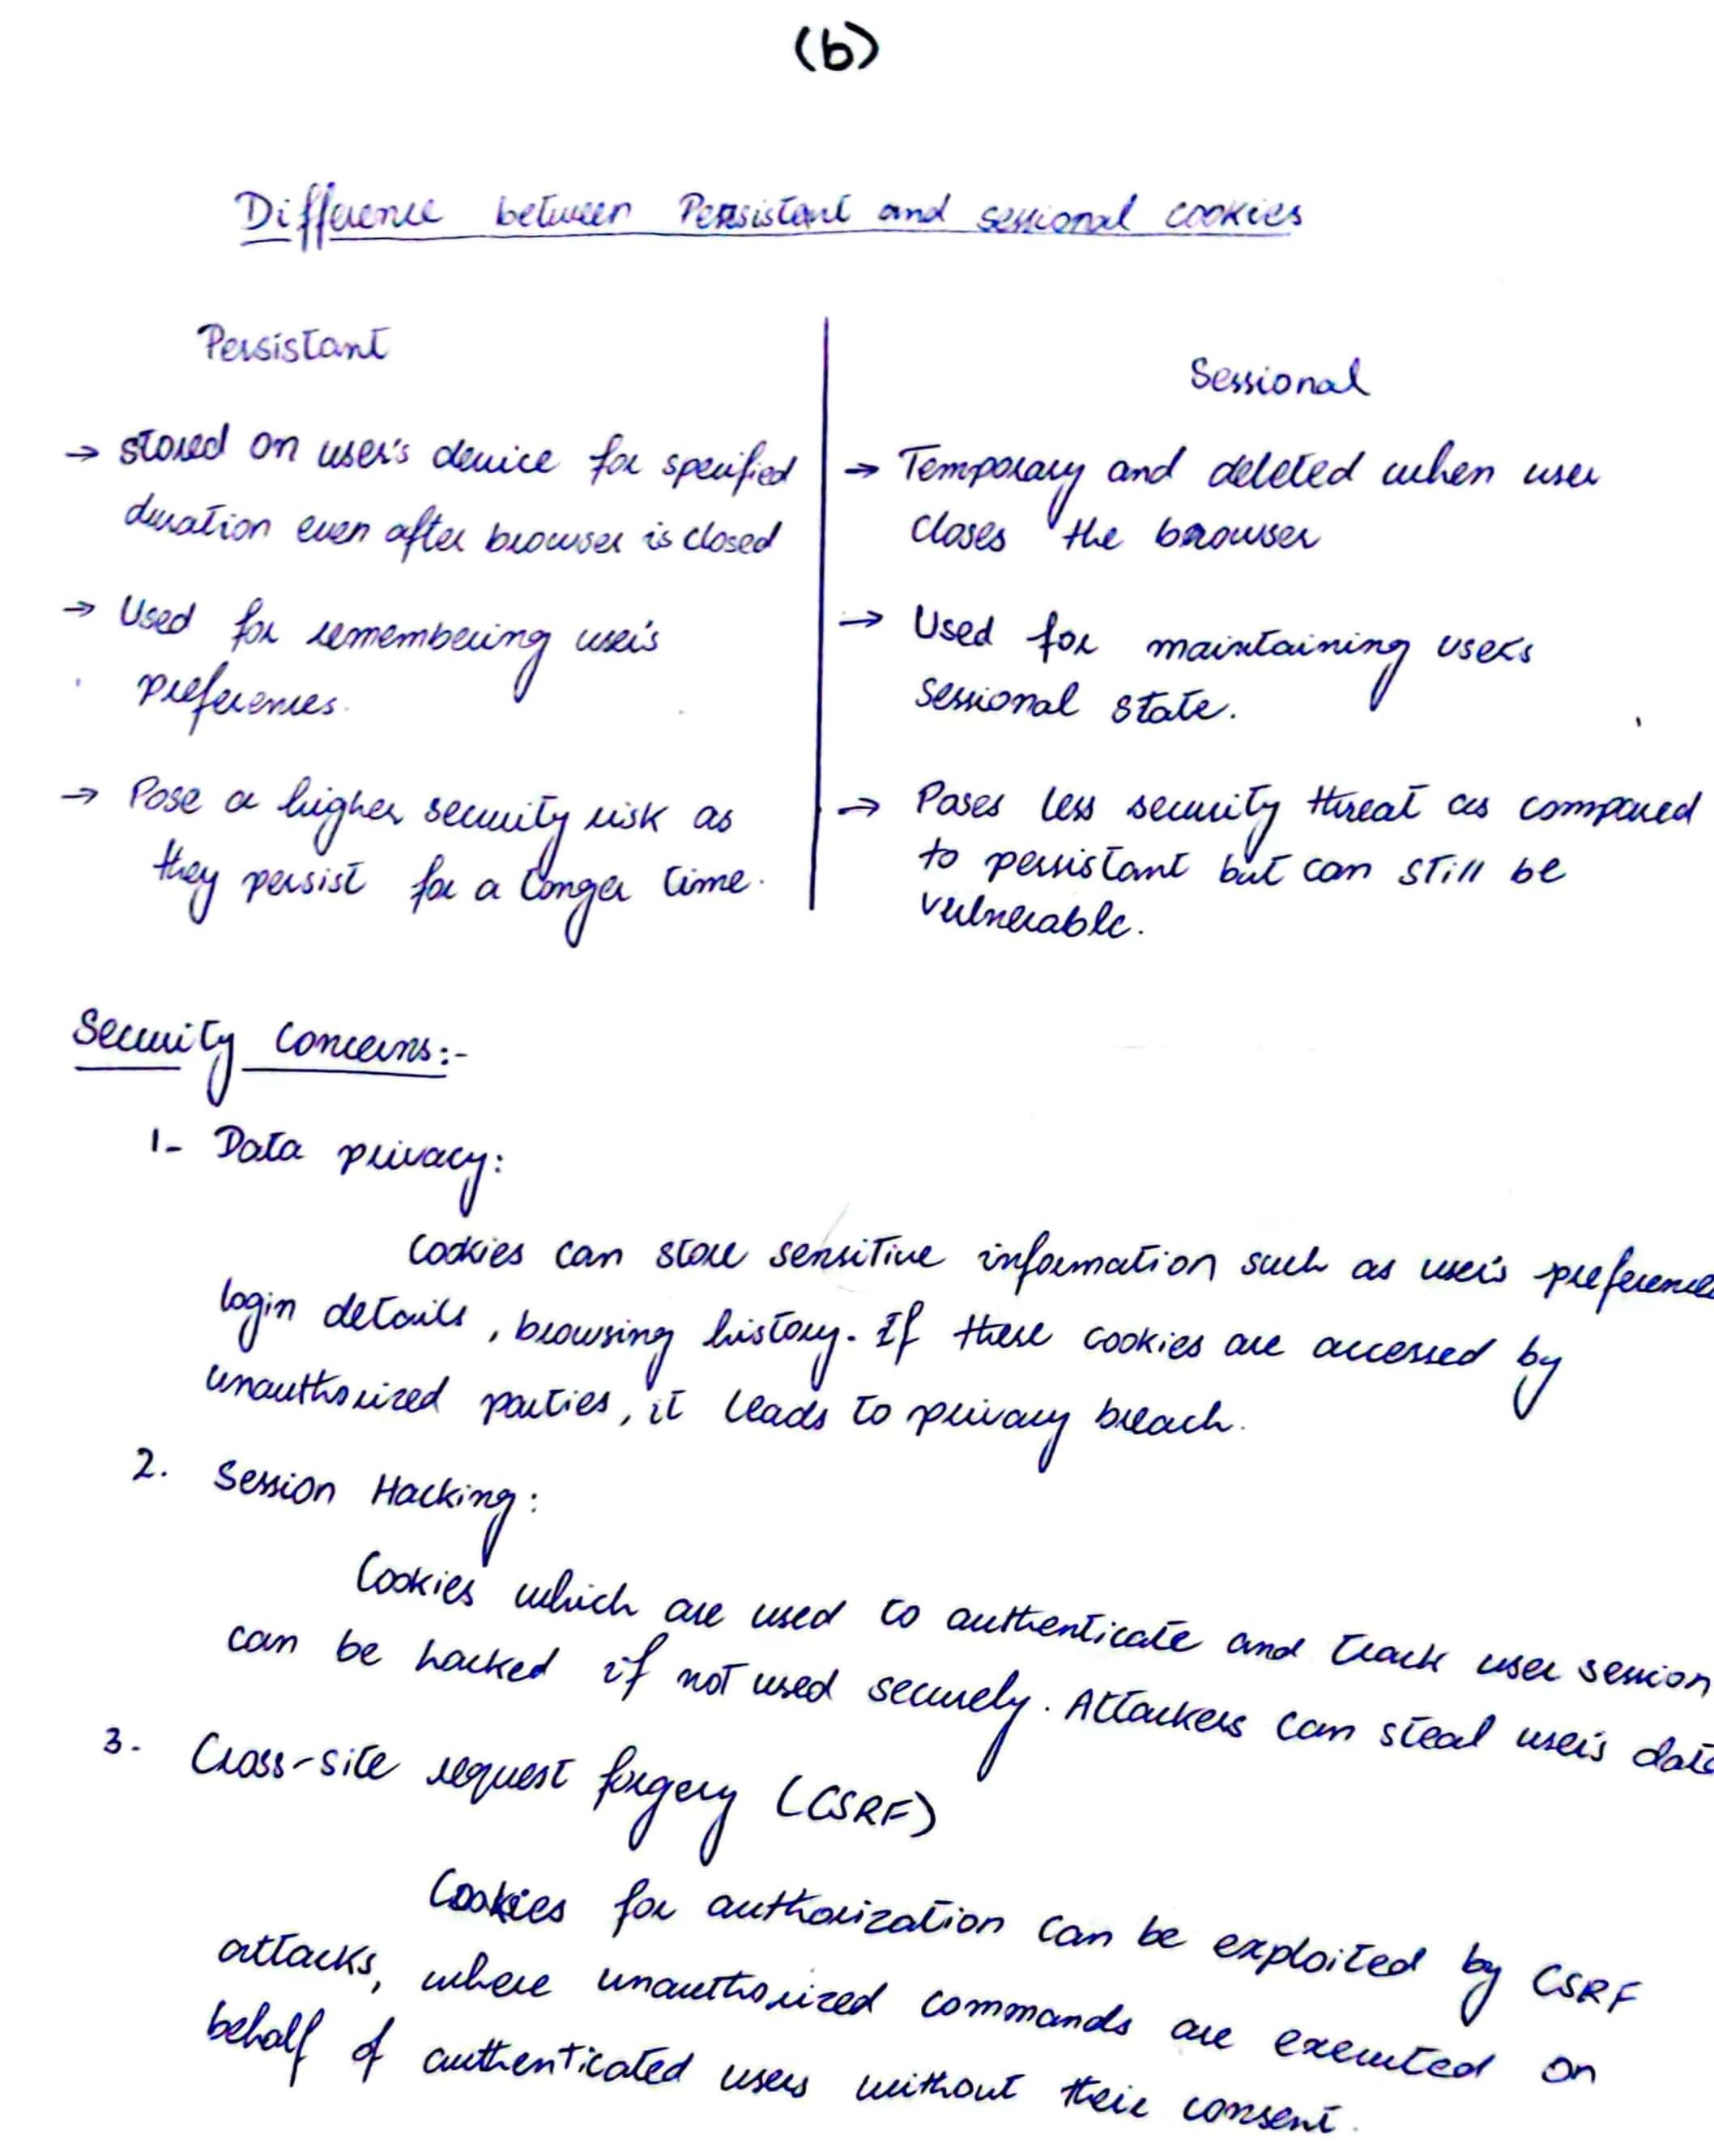 (b)
Difference between Persistant and sessional cookies
Persistant
→ stored on user's device for specified
duration even after browser is closed
→ Used for remembering user's
preferences.
→ Pose a higher security risk as
they persist for a longer time.
Sessional
→ Temporary and deleted when user
closes the browser
→ Used for maintaining users
sessional state.
→ Poses less security threat as compared
to persistant but can still be
vulnerable.
Security Concerns:-
1- Data privacy:
Cookies can store sensitive information such as user's preference
login details, browsing history. If these cookies are accessed by
unauthorized parties, it leads to privacy breach.
2. Session Hacking:
Cookies which are used to authenticate and track user session
can be hacked if not used securely. Attackers can steal user's data
3. Cross-site request forgery (CSRF)
Cookies for authorization can be exploited by CSRF
attacks, where unauthorized commands are executed on
behalf of authenticated users without their consent.